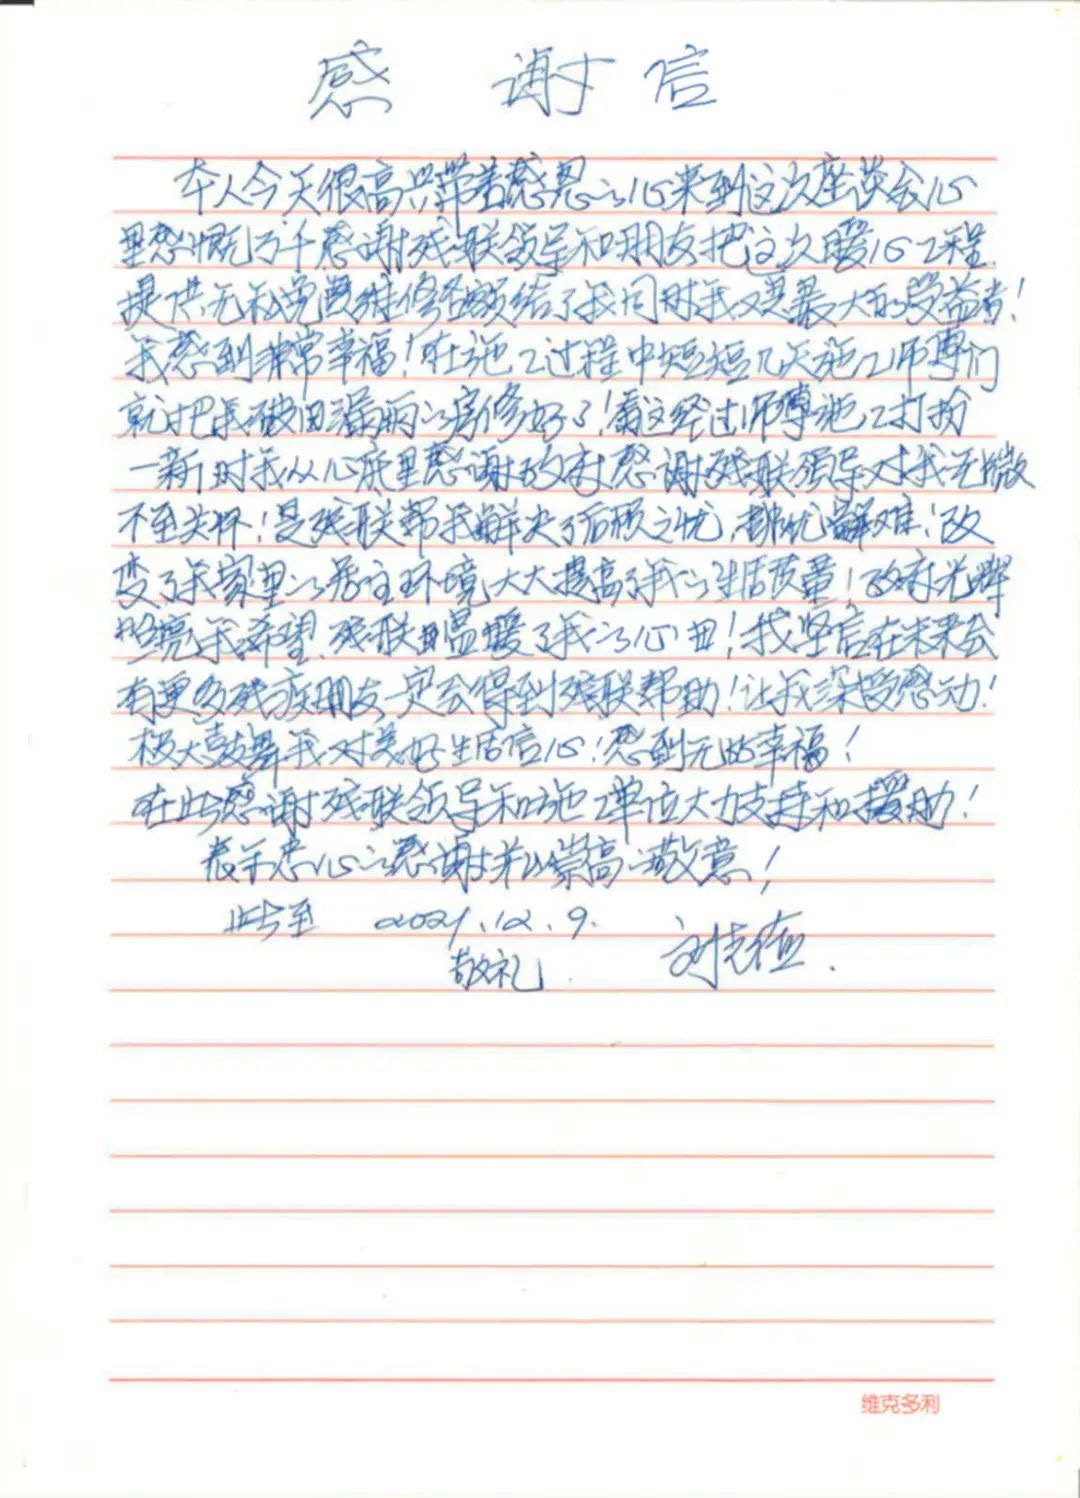 感谢信
本人今天很高兴带着感恩之心来到这次座谈会心
里感慨万千感谢残联领导和朋友把这次暖心工程
提供无私完善维修名额给了我同时我又是最大的受益者！
我感到非常幸福！在施工过程中短短几天施工师傅们
就把我破旧漏雨之房修好了！看这经过师傅施工打扮
一新时我从心底里感谢政府感谢残联领导对我无微
不至关怀！是残联帮我解决了后顾之忧，排忧解难！改
变了我家里之居住环境大大提高了我之生活质量！政府光辉
照亮我希望，残联温暖了我之心田！我坚信在未来会
有更多残疾朋友一定会得到残联帮助！让我深受感动！
极大鼓舞我对美好生活信心！感到无比幸福！
在此感谢残联领导和施工单位大力支持和援助！
表示忠心之感谢并以崇高之敬意！
此至 2021.12.9.
敬礼
维克多利